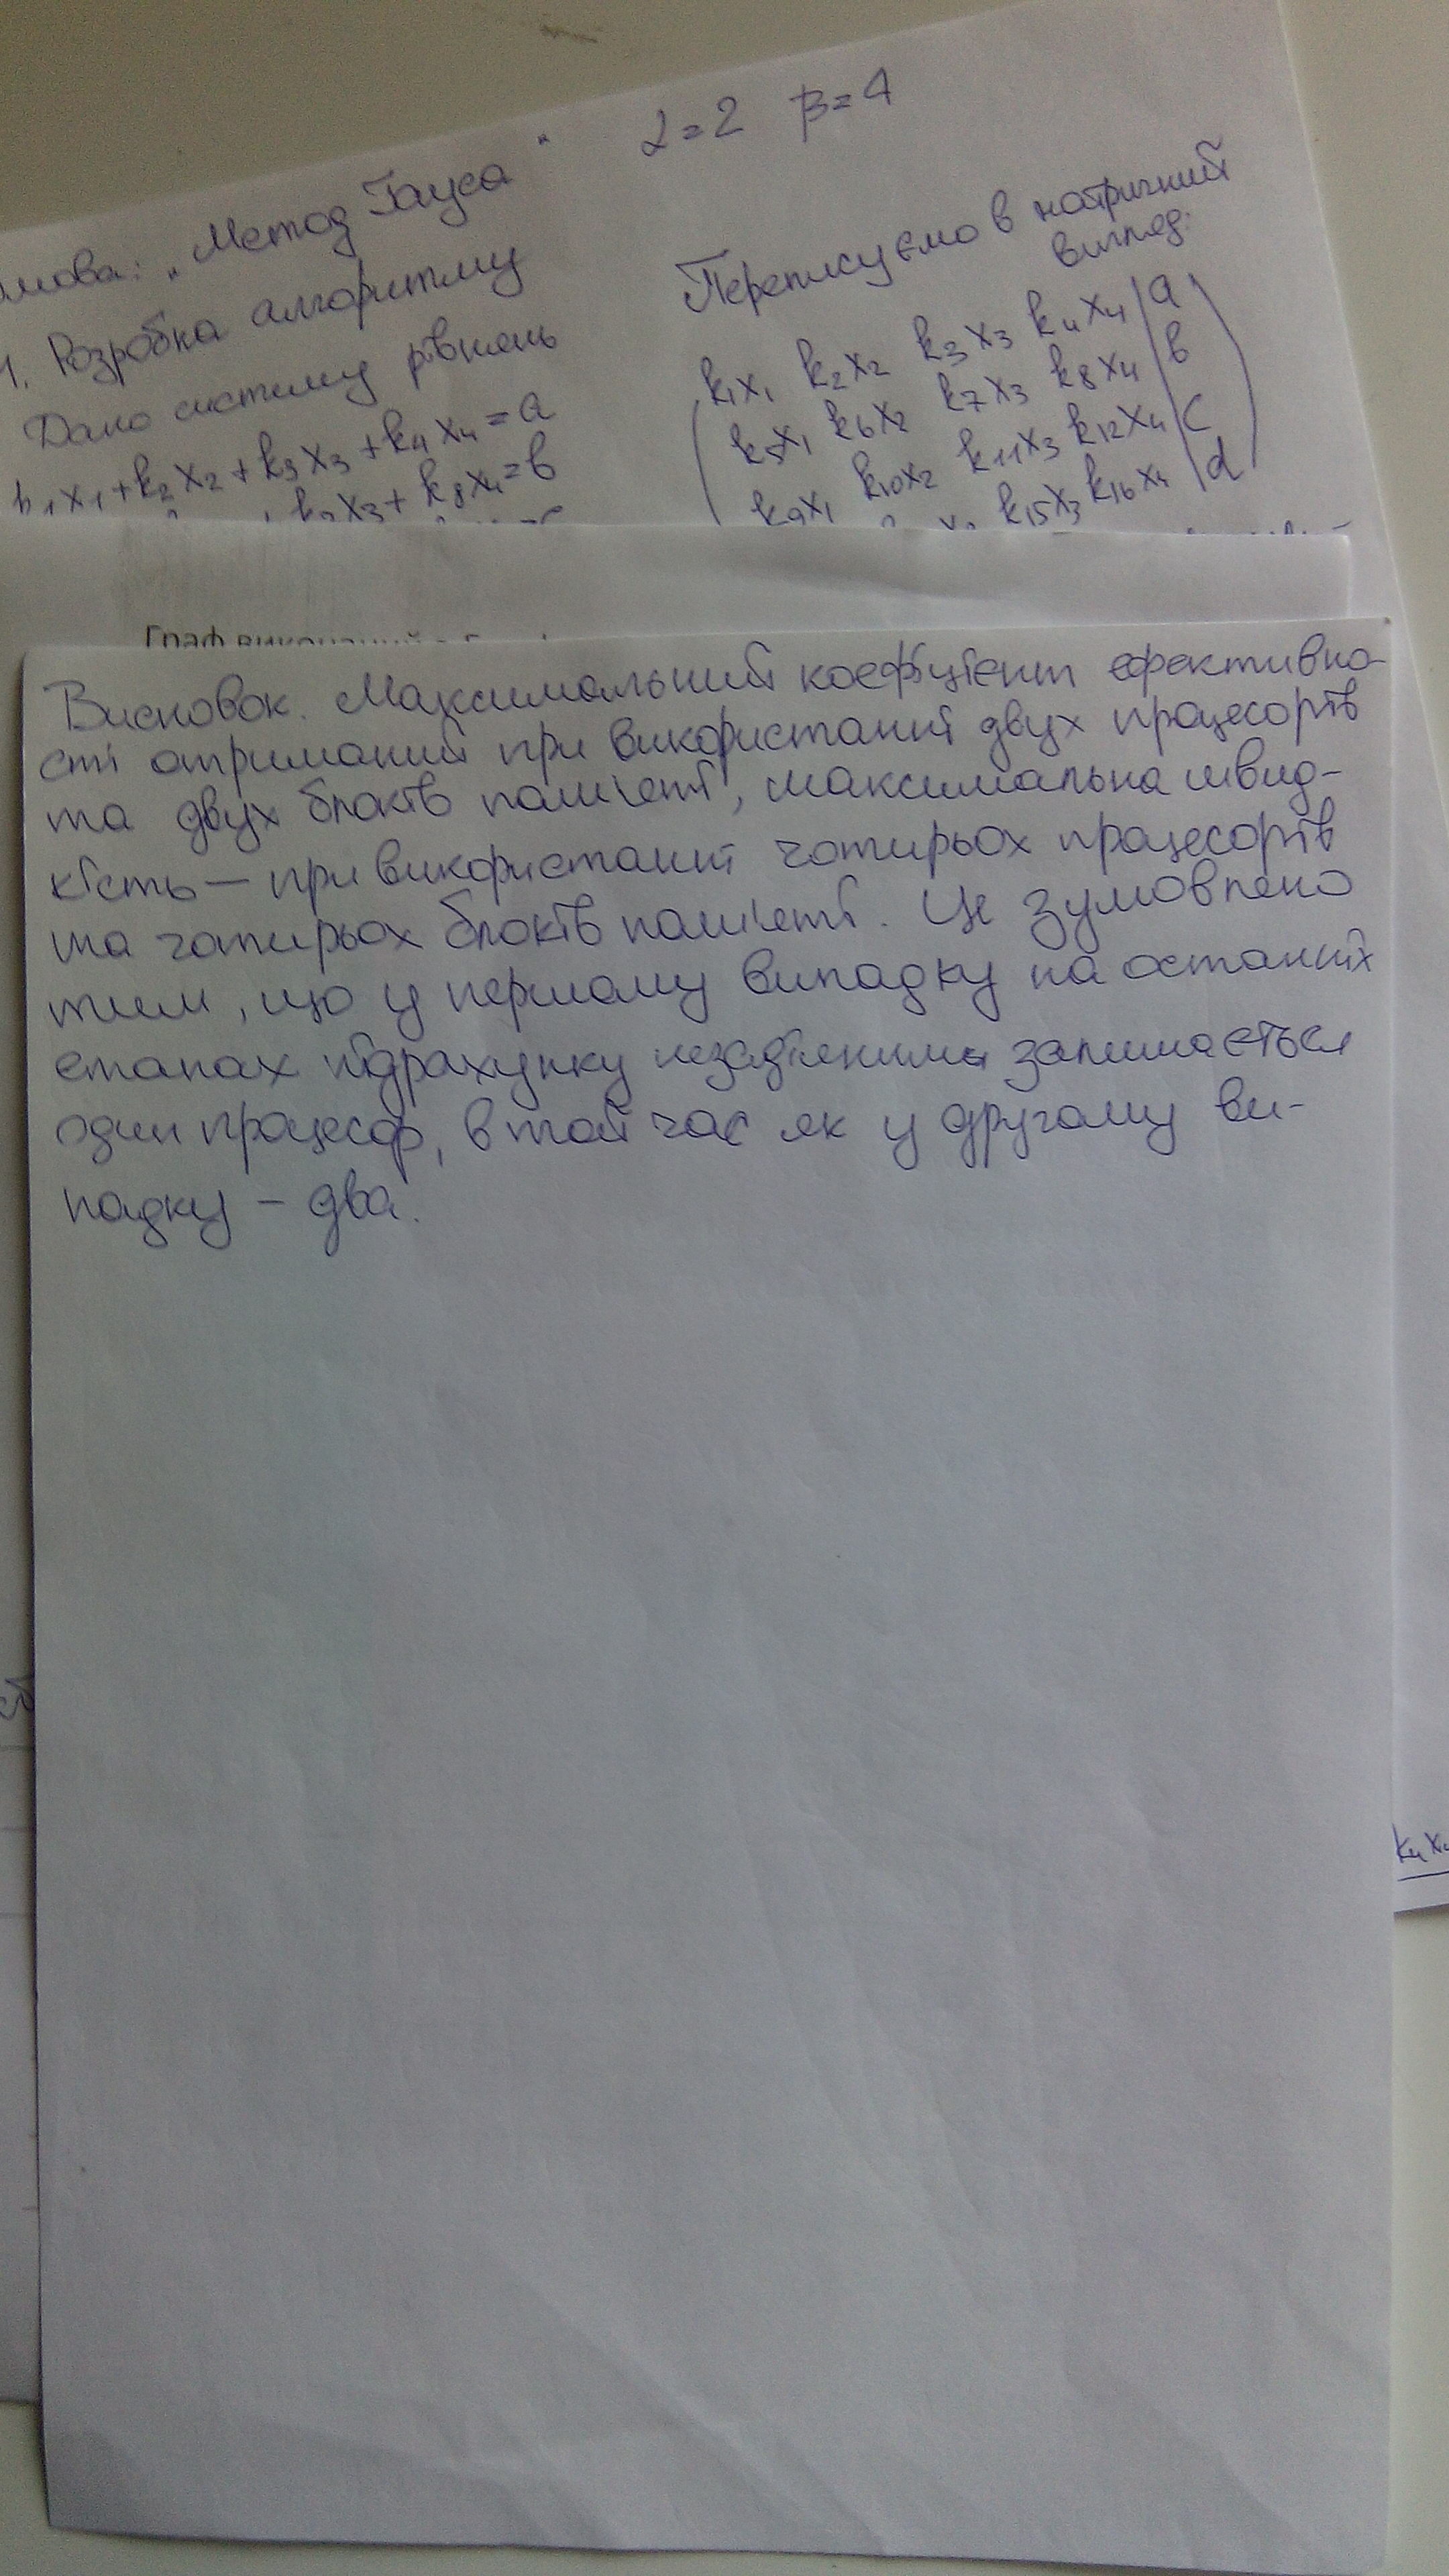 α=2 β=4
„Метод Гауса"
1. Розробка алгоритму
Дано систему рівнянь
k₁x₁+k₂x₂+k₃x₃+k₄x₄=a
x₃+k₈x₄=b
Переписуємо в матричний
вигляд:
k₁x₁ k₂x₂ k₃x₃ k₄x₄ | a
k₅x₁ k₆x₂ k₇x₃ k₈x₄ | b
k₉x₁ k₁₀x₂ k₁₁x₃ k₁₂x₄ | c
k₁₅x₃ k₁₆x₄ | d
Висновок. Максимальний коефіцієнт ефективно-
сті отриманий при використанні двух процесорів
та двух блоків пам'яті, максимальна швид-
кість — при використанні чотирьох процесорів
та чотирьох блоків пам'яті. Це зумовлено
тим, що у першому випадку на останніх
етапах підрахунку незадіяним залишається
один процесор, в той час як у другому ви-
падку – два.